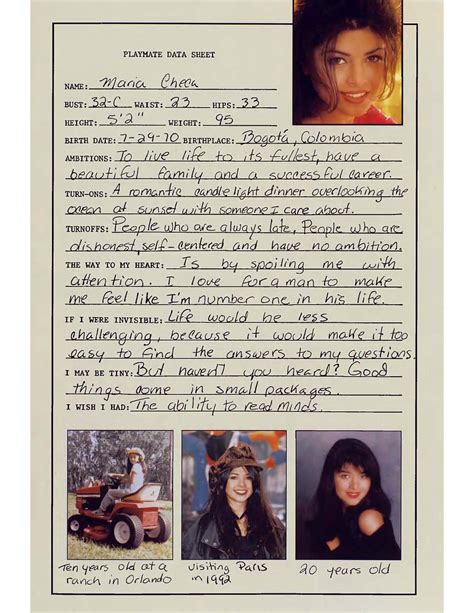 PLAYMATE DATA SHEET
NAME: Maria Checa
BUST: 32-C WAIST: 23 HIPS: 33
HEIGHT: 5'2" WEIGHT: 95
BIRTH DATE: 7-29-70 BIRTHPLACE: Bogotá, Colombia
AMBITIONS: To live life to its fullest, have a
beautiful family and a successful career.
TURN-ONS: A romantic candlelight dinner overlooking the
ocean at sunset with someone I care about.
TURNOFFS: People who are always late, People who are
dishonest, self-centered and have no ambition.
THE WAY TO MY HEART: Is by spoiling me with
attention. I love for a man to make
me feel like I'm number one in his life.
IF I WERE INVISIBLE: Life would be less
challenging, because it would make it too
easy to find the answers to my questions.
I MAY BE TINY: But haven't you heard? Good
things come in small packages.
I WISH I HAD: The ability to read minds.
Ten years old at a
ranch in Orlando
visiting Paris
in 1992
20 years old